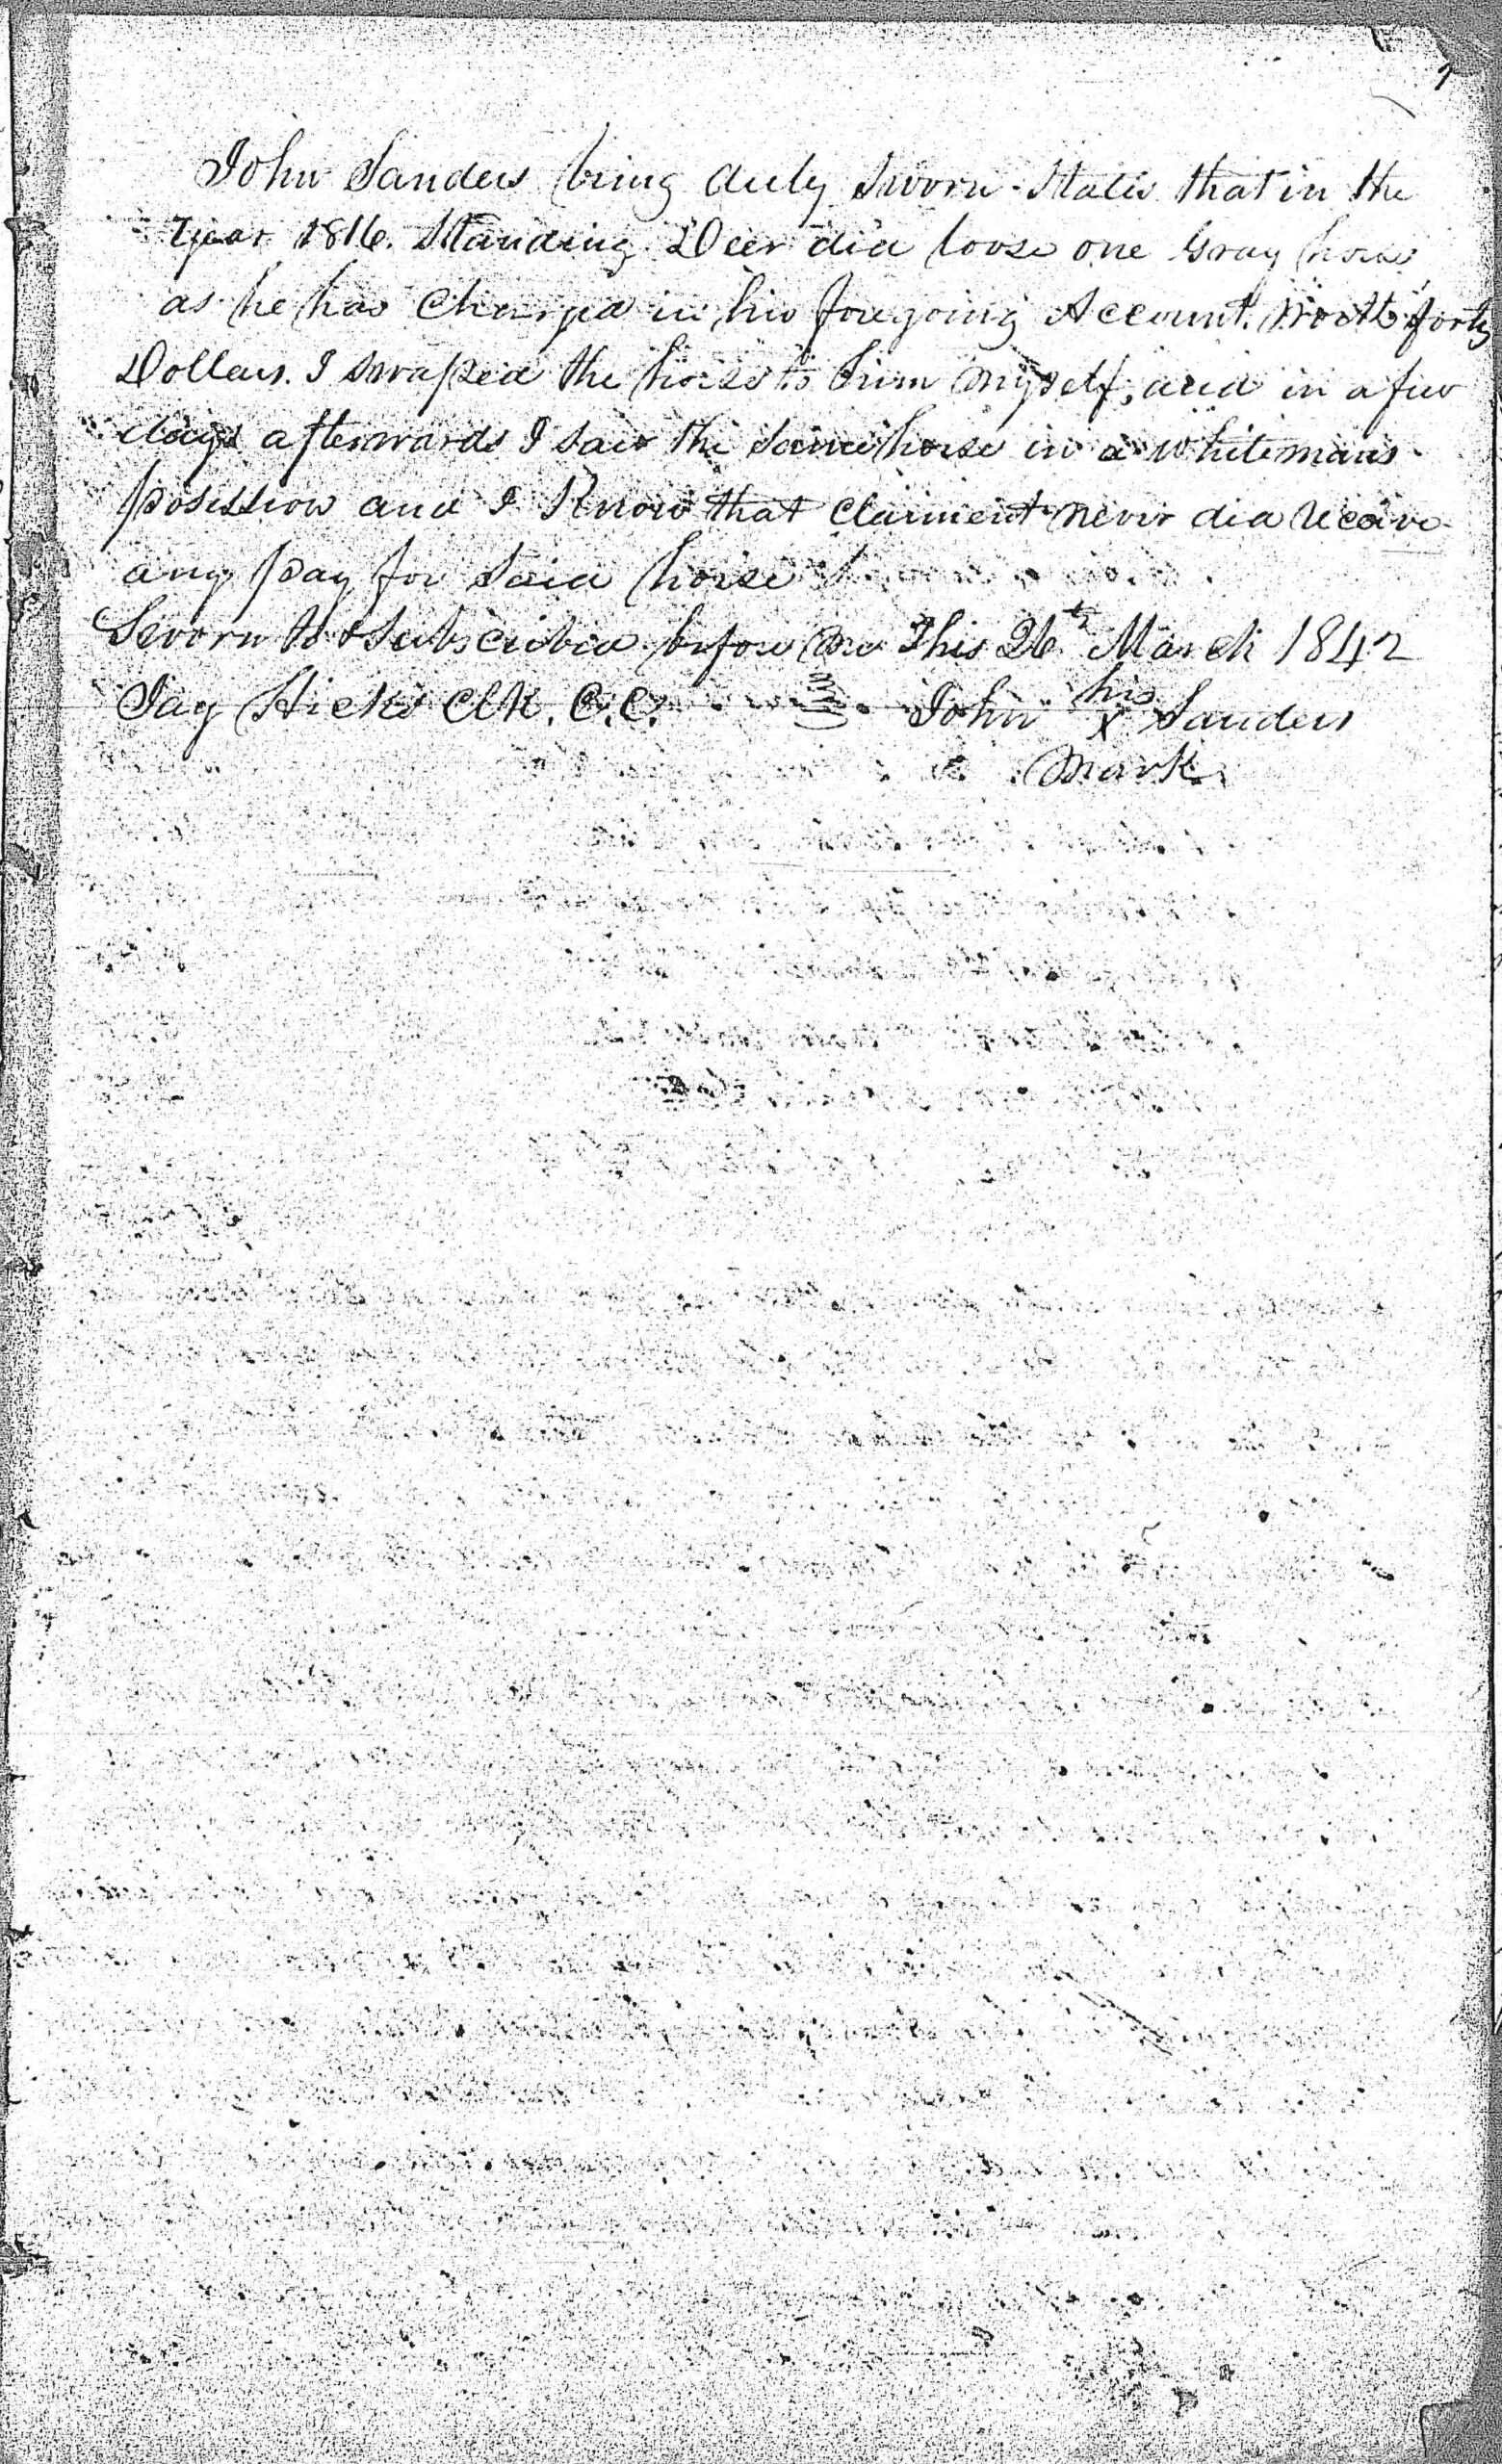 John Sanders being duly Sworn States that in the
year 1816. Standing Deer did loose one Gray horse
as he has Charged in his foregoing Account. Worth forty
Dollars. I swaped the horse to him myself, and in a few
days afterwards I saw the same horse in a whitemans
posession and I Know that Claiment never did receive
any pay for said horse
Sworn to & Subscribed before me This 26th March 1842
Jay Hicks Clk. C.C. John his x mark Sanders